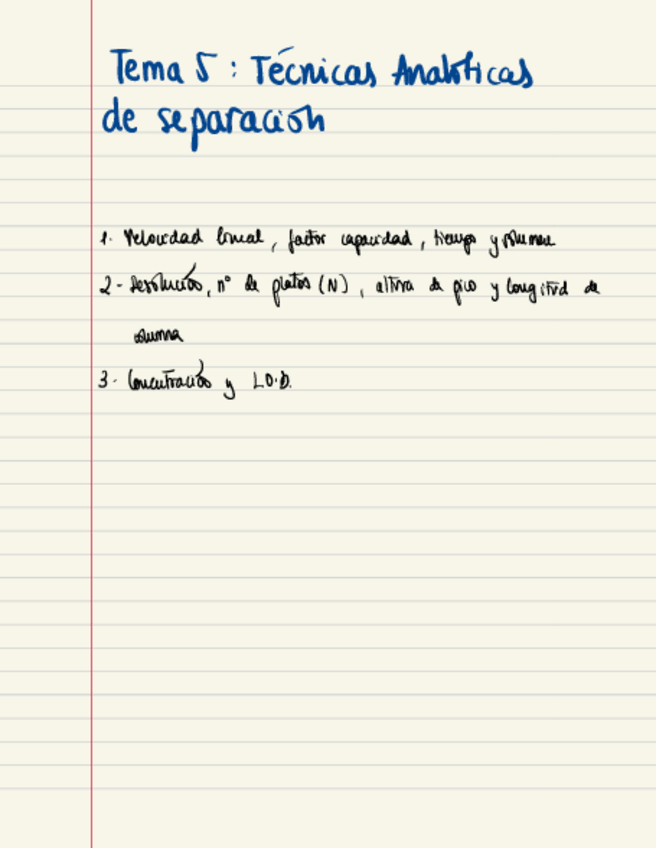 Tema 5: Técnicas Analíticas
de separación
1. Velocidad lineal, factor capacidad, tiempo y volumen
2- Resolución, nº de platos (N), altura de pico y longitud de
columna
3- Concentración y L.O.D.